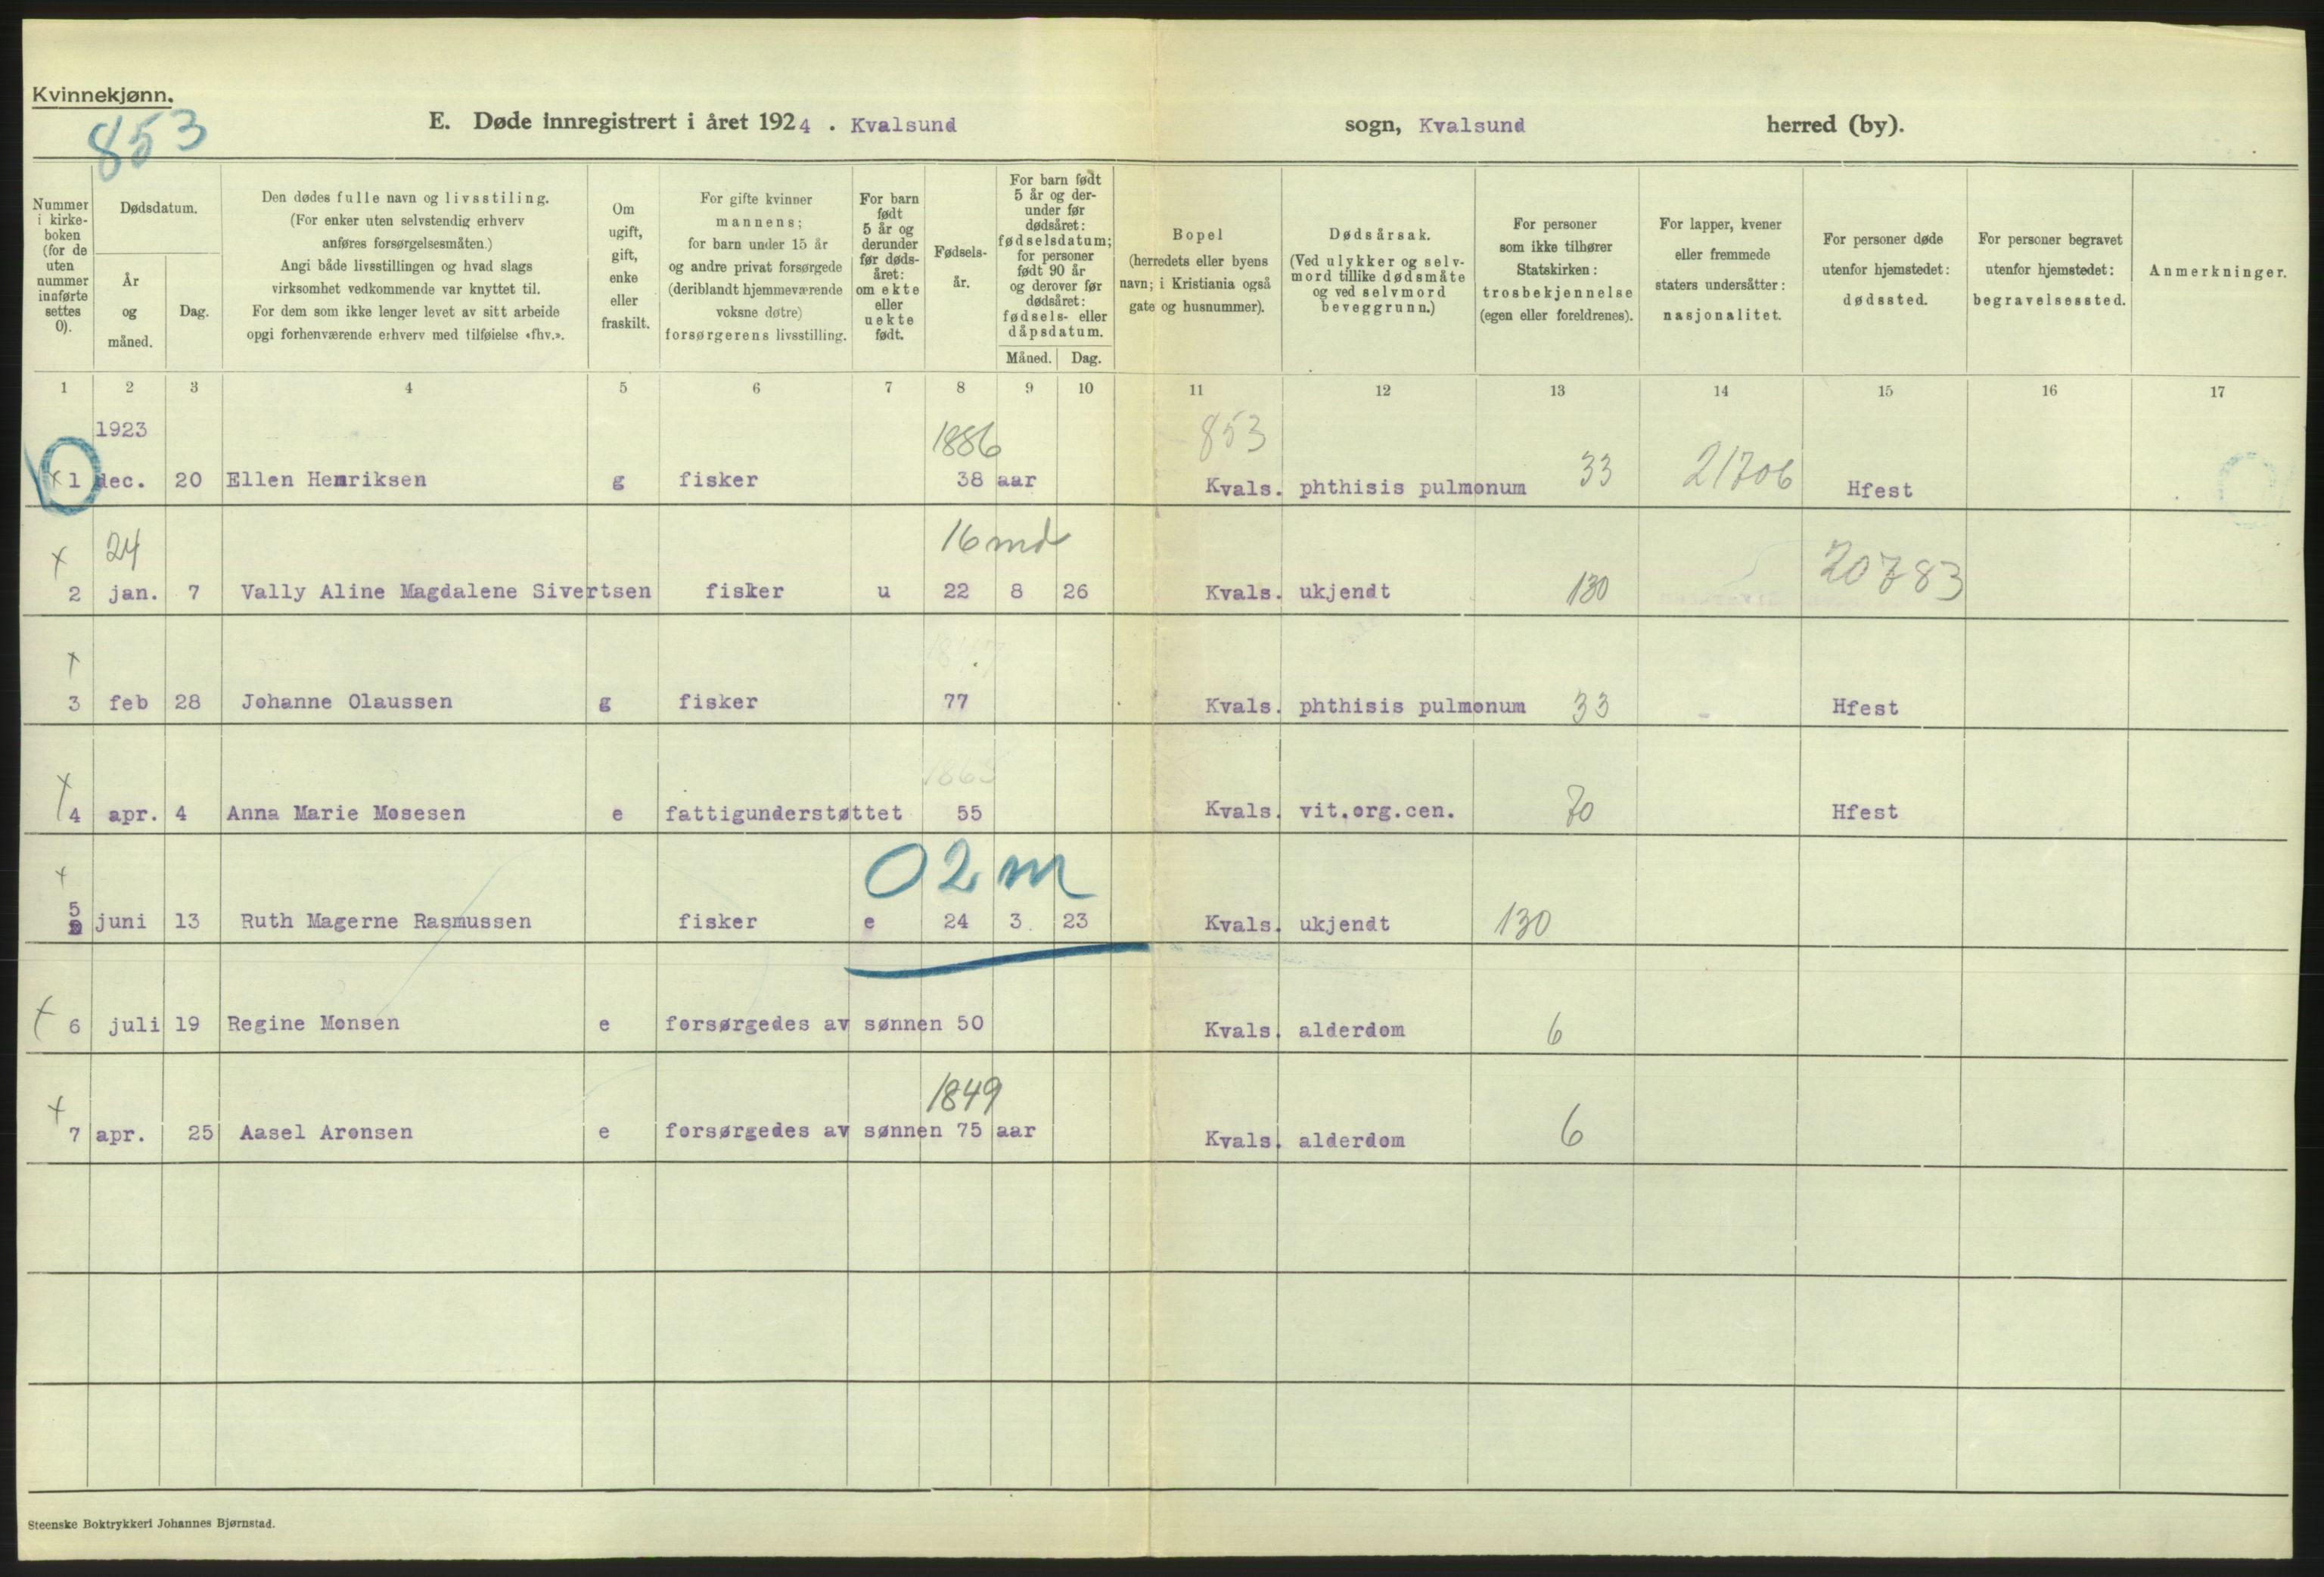 Kvinnekjønn.
853
E. Døde innregistrert i året 1924 . Kvalsund sogn, Kvalsund herred (by).
Nummer i kirke- boken (for de uten nummer innførte settes 0).
Dødsdatum.
År og måned.
Dag.
Den dødes fulle navn og livsstiling.
(For enker uten selvstendig erhverv
anføres forsørgelsesmåten.)
Angi både livsstillingen og hvad slags
virksomhet vedkommende var knyttet til.
For dem som ikke lenger levet av sitt arbeide
opgi forhenværende erhverv med tilføielse «fhv.».
Om
ugift,
gift,
enke
eller
fraskilt.
For gifte kvinner
mannens;
for barn under 15 år
og andre privat forsørgede
(deriblandt hjemmeværende
voksne døtre)
forsørgerens livsstilling.
For barn
født
5 år og
derunder
før døds-
året:
om ekte
eller
uekte
født.
Fødsels-
år.
For barn født
5 år og der-
under før
dødsåret:
fødselsdatum;
for personer
født 90 år
og derover før
dødsåret:
fødsels- eller
dåpsdatum.
Måned. Dag.
Bopel
(herredets eller byens
navn; i Kristiania også
gate og husnummer).
Dødsårsak.
(Ved ulykker og selv-
mord tillike dødsmåte
og ved selvmord
beveggrunn.)
For personer
som ikke tilhører
Statskirken:
trosbekjennelse
(egen eller foreldrenes).
For lapper, kvener
eller fremmede
staters undersåtter:
nasjonalitet.
For personer døde
utenfor hjemstedet:
dødssted.
For personer begravet
utenfor hjemstedet:
begravelsessted.
Anmerkninger.
1 2 3 4 5 6 7 8 9 10 11 12 13 14 15 16 17
1923 1886 853
x 1 dec. 20 Ellen Henriksen g fisker 38 aar Kvals. phthisis pulmonum 33 21706 Hfest
x 24 16 md 20783
2 jan. 7 Vally Aline Magdalene Sivertsen fisker u 22 8 26 Kvals. ukjendt 130
x
3 feb 28 Johanne Olaussen g fisker 77 Kvals. phthisis pulmonum 33 Hfest
x 1865
4 apr. 4 Anna Marie Mosesen e fattigunderstøttet 55 Kvals. vit.org.cen. 70 Hfest
x 02 m
5 juni 13 Ruth Magerne Rasmussen fisker e 24 3. 23 Kvals. ukjendt 130
x 6 juli 19 Regine Monsen e forsørgedes av sønnen 50 Kvals. alderdom 6
x 1849
7 apr. 25 Aasel Aronsen e forsørgedes av sønnen 75 aar Kvals. alderdom 6
Steenske Boktrykkeri Johannes Bjørnstad.